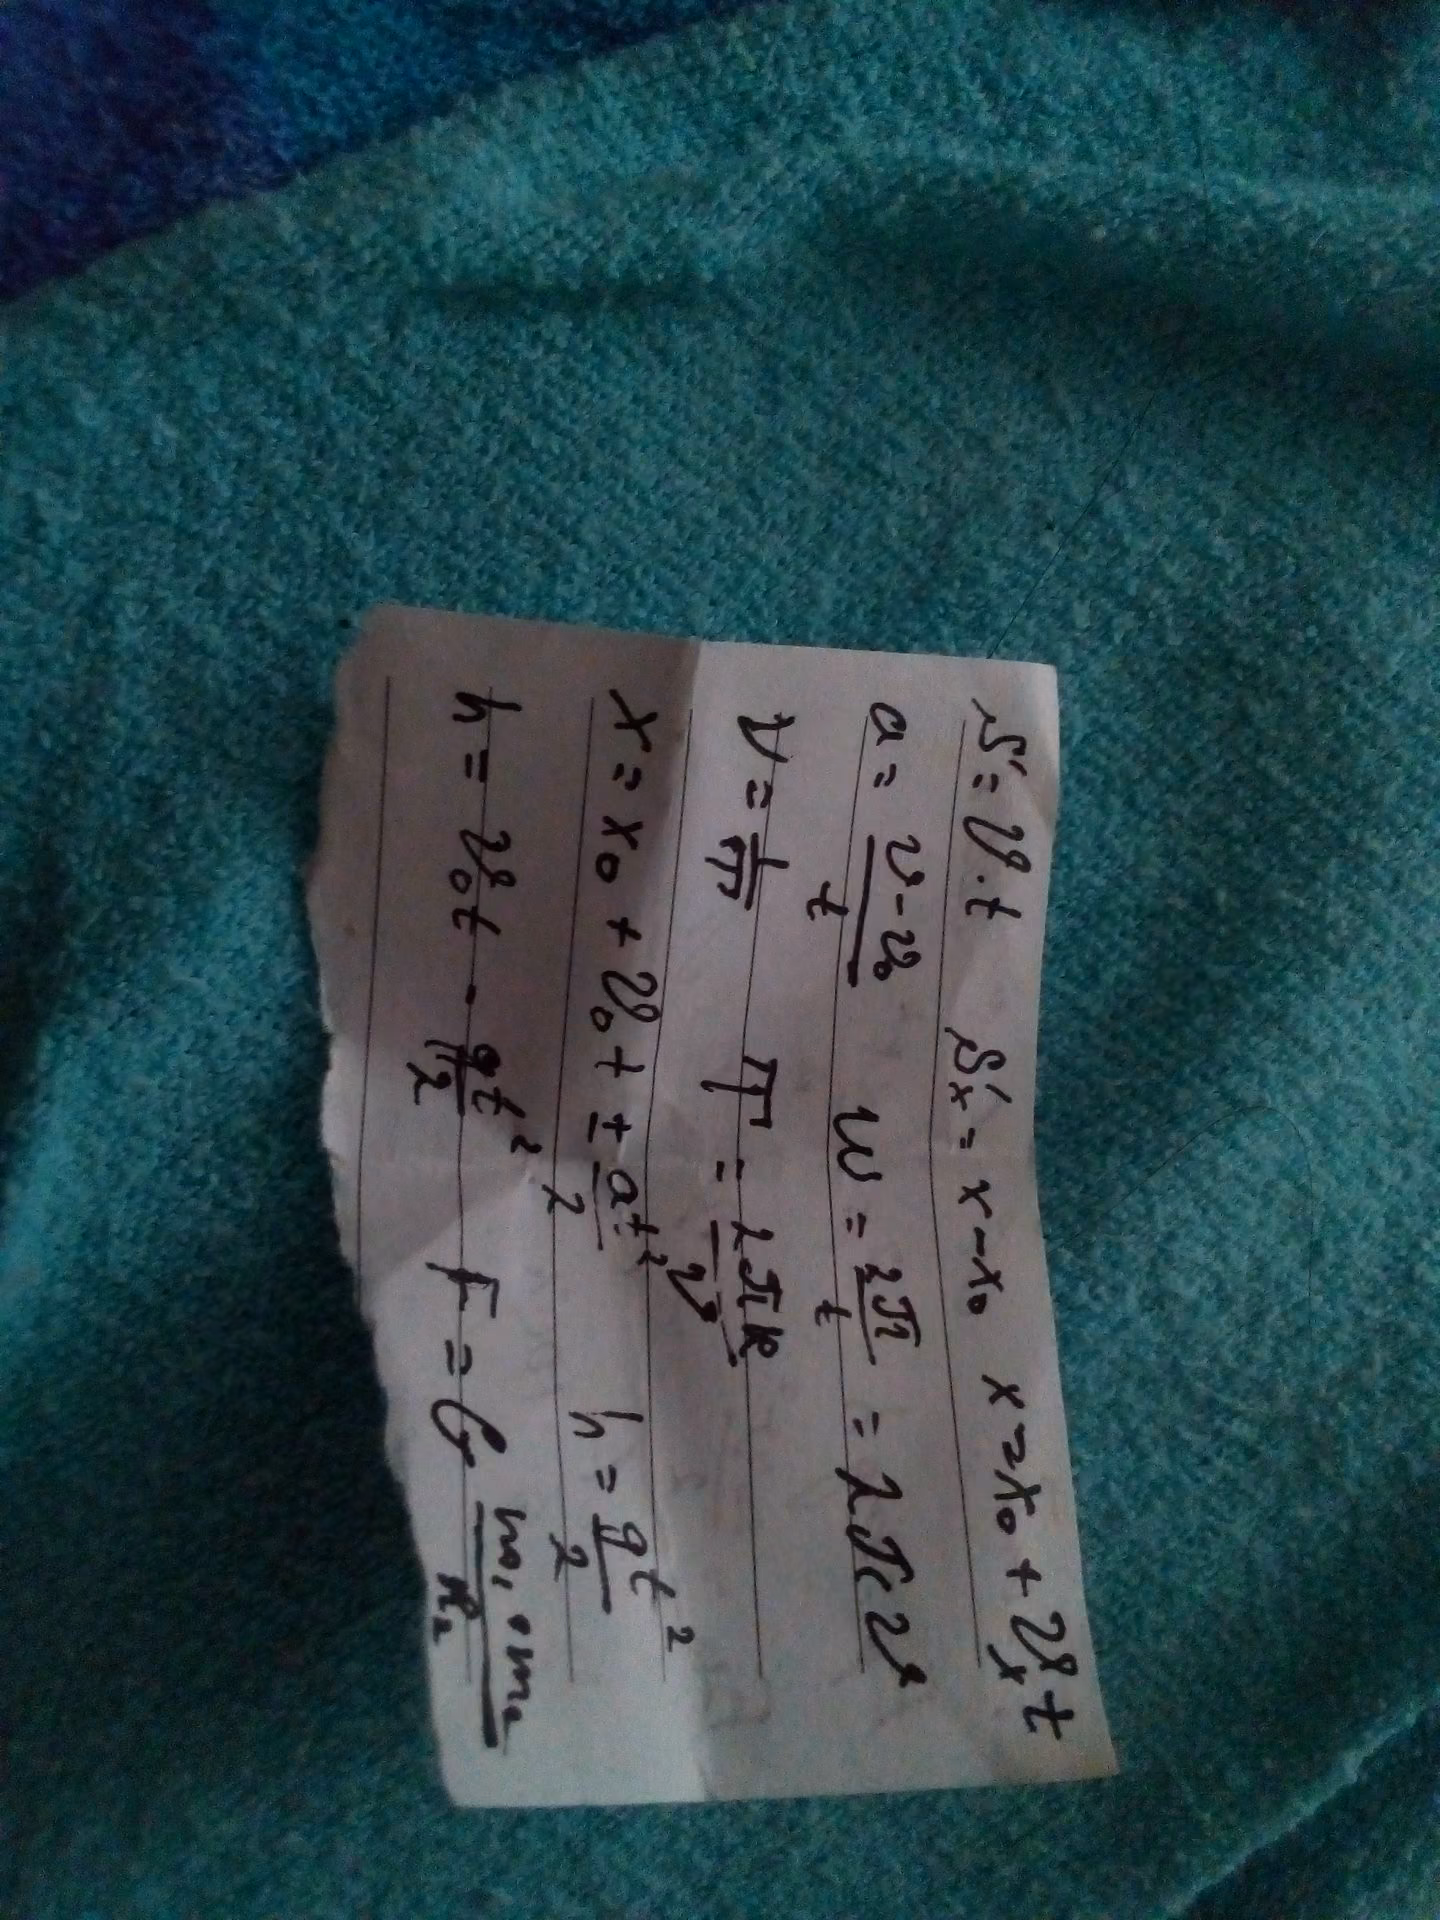 S = v · t   Sx = x − x₀   x = x₀ + vₓt
a = (v − v₀)/t   ω = 2π/t = 2πν
ν = 1/T   T = 2πR/v
x = x₀ + v₀t ± at²/2   h = gt²/2
h = v₀t − gt²/2   F = G m₁·m₂/R²